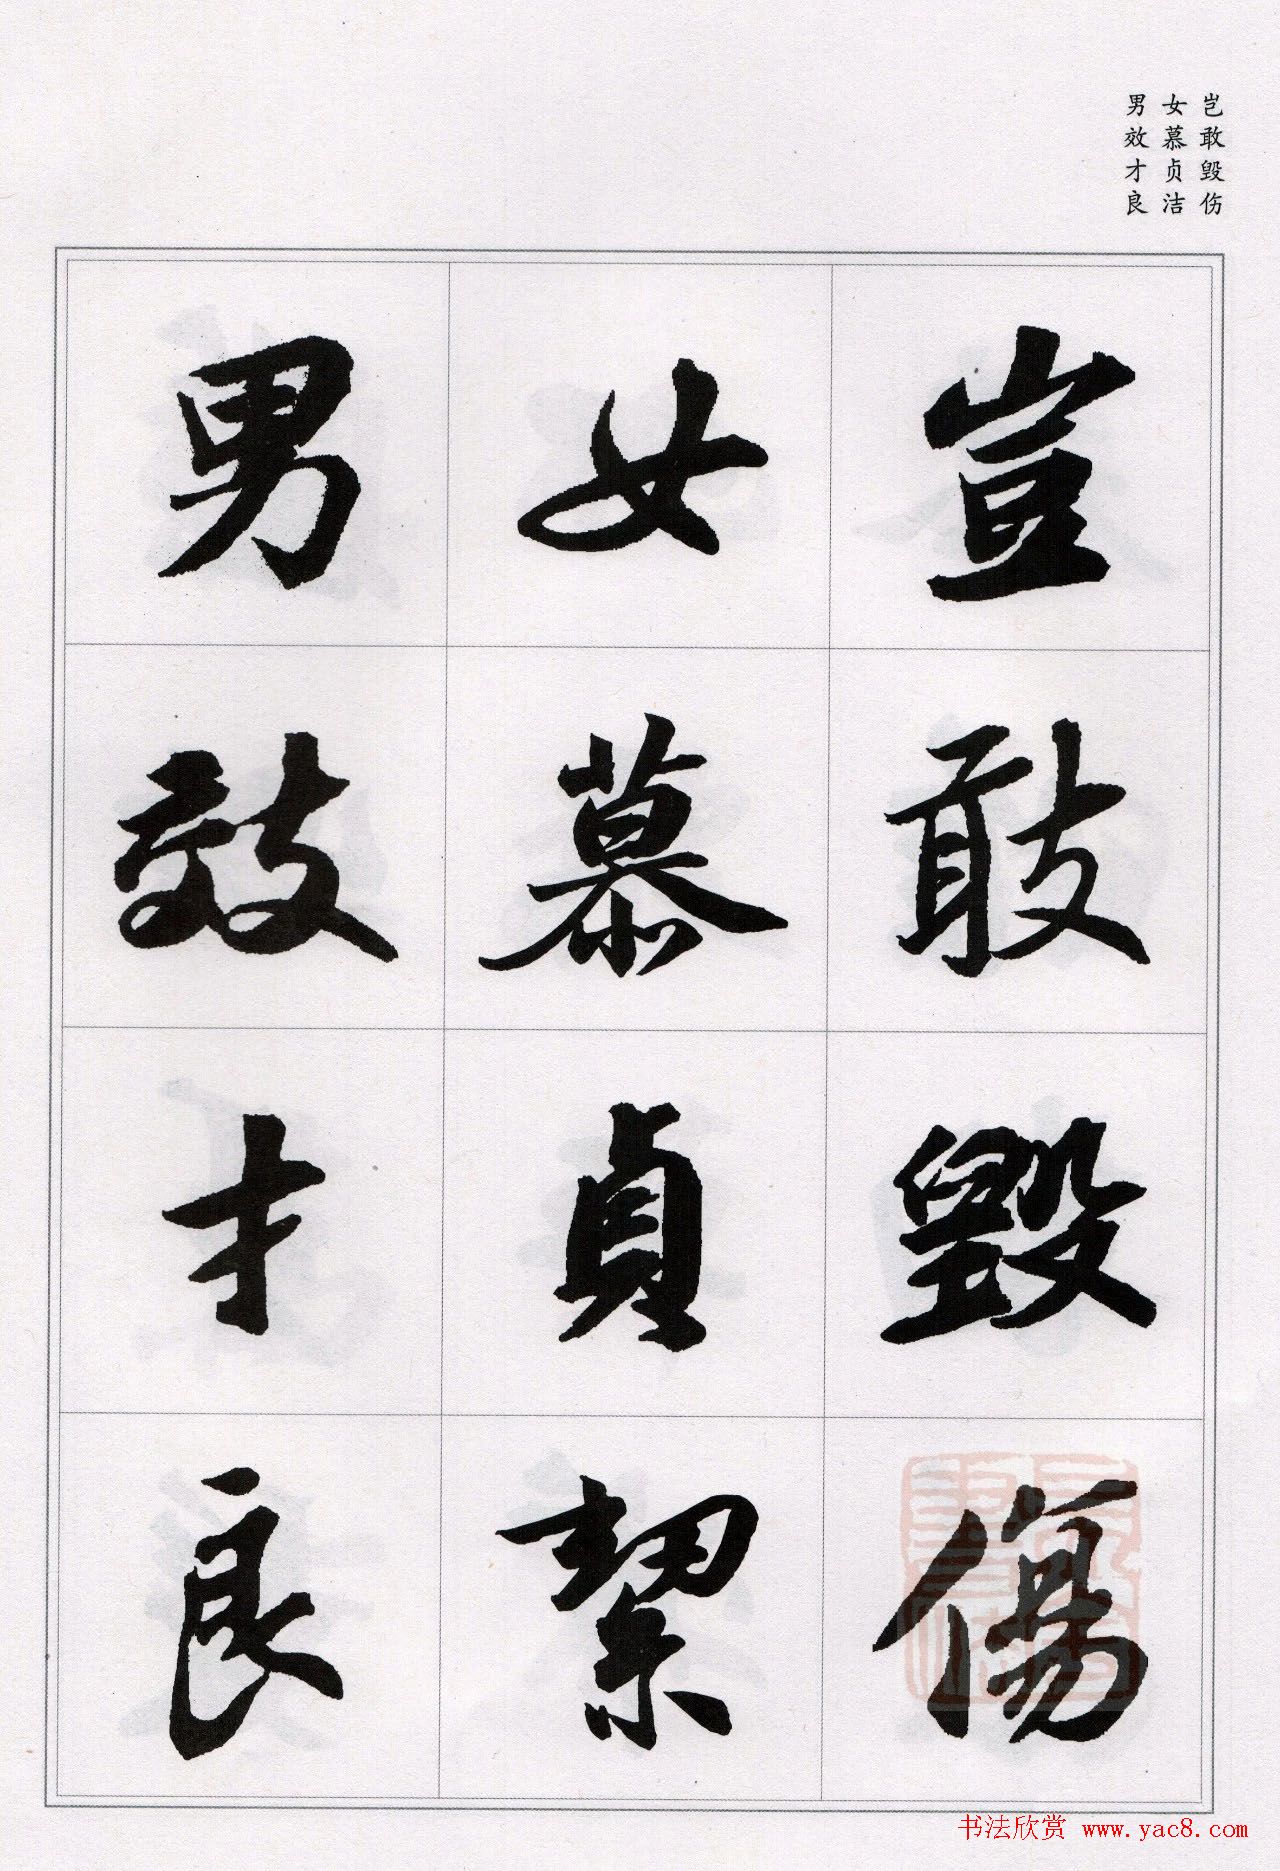 岂敢毁伤
女慕贞洁
男效才良
豈敢毀傷
女慕貞絜
男效才良
书法欣赏 www.yac8.com